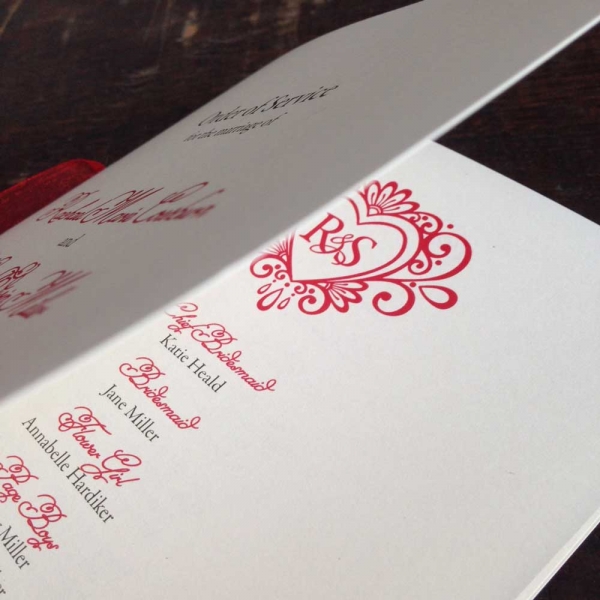 Order of Service
in the marriage of
and
R&S
Chief Bridesmaid
Katie Heald
Bridesmaid
Jane Miller
Flower Girl
Annabelle Hardiker
Page Boys
Miller